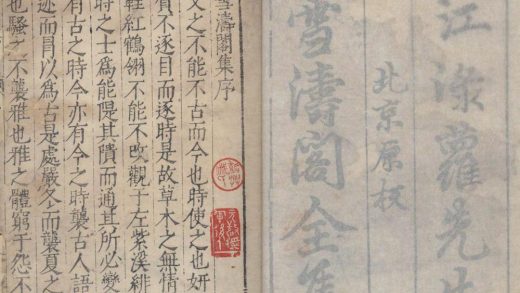 江淥蘿先生
北京原板
雪濤閣全集
雪濤閣集序
文之不能不古而今也時使之也妍
質不逐目而逐時是故草木之無情
鞓紅鶴翎不能不改觀于左紫溪緋
時之士為能隄其隤而通其所必變
有古之時今亦有今之時襲古人語
迹而冒以為古是處嚴冬而襲夏之
也騷之不襲雅也雅之體窮于怨不